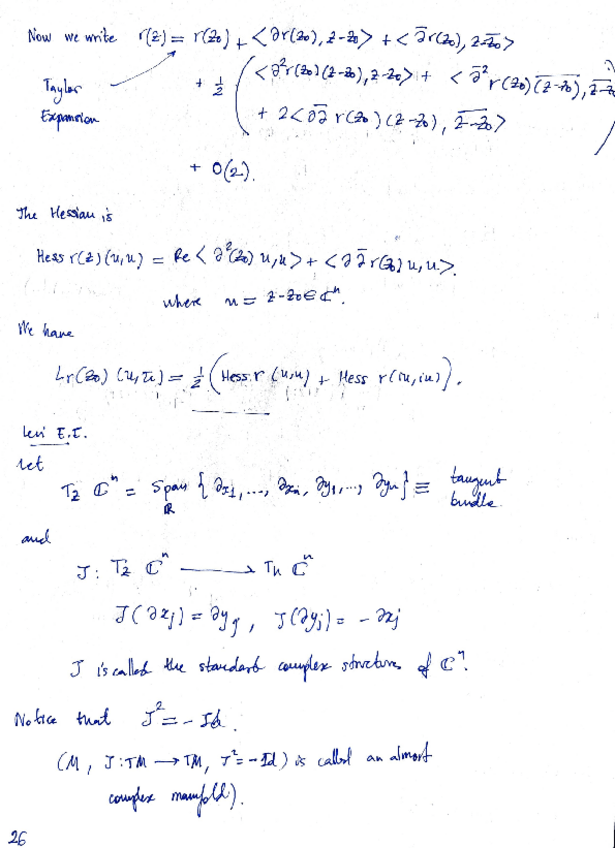 Now we write r(z) = r(z₀) + <∂r(z₀), z-z₀> + <∂̄r(z₀), \overline{z-z₀}>
Taylor Expansion
+ 1/2 ( <∂²r(z₀)(z-z₀), z-z₀> + <∂̄²r(z₀)(\overline{z-z₀}), \overline{z-z₀}>
+ 2<∂∂̄ r(z₀)(z-z₀), \overline{z-z₀}> )
+ O(2).
The Hessian is
Hess r(z)(u,u) = Re<∂²(z₀) u,u> + <∂∂̄r(z₀) u,u>.
where u = z-z₀ ∈ ℂⁿ.
We have
Lr(z₀)(u,ū) = 1/2 (Hess r (u,u) + Hess r(iu,iu)).
Levi E.I.
let
T_z ℂⁿ = Span_ℝ {∂x₁, ..., ∂xₙ, ∂y₁, ..., ∂yₙ} ≡ tangent bundle
and
J: T_z ℂⁿ ⟶ Tₙ ℂⁿ
J(∂xⱼ) = ∂yⱼ, J(∂yⱼ) = -∂xⱼ
J is called the standard complex structures of ℂⁿ.
Notice that J² = - Id.
(M, J:TM → TM, J²=-Id) is called an almost
complex manifold).
26